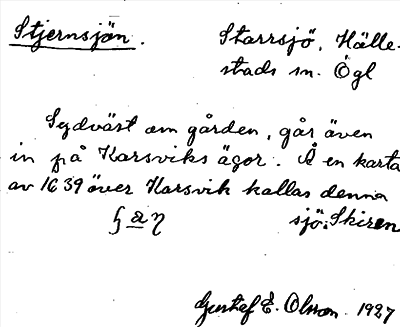 Stjernsjön. Starrsjö, Hälle-
stads sn. Ögl
Sydväst om gården, går även
in på Karsviks ägor. Å en karta
av 1639 över Karsvik kallas denna
sjö: Skiren
Gustaf E. Olsson. 1927